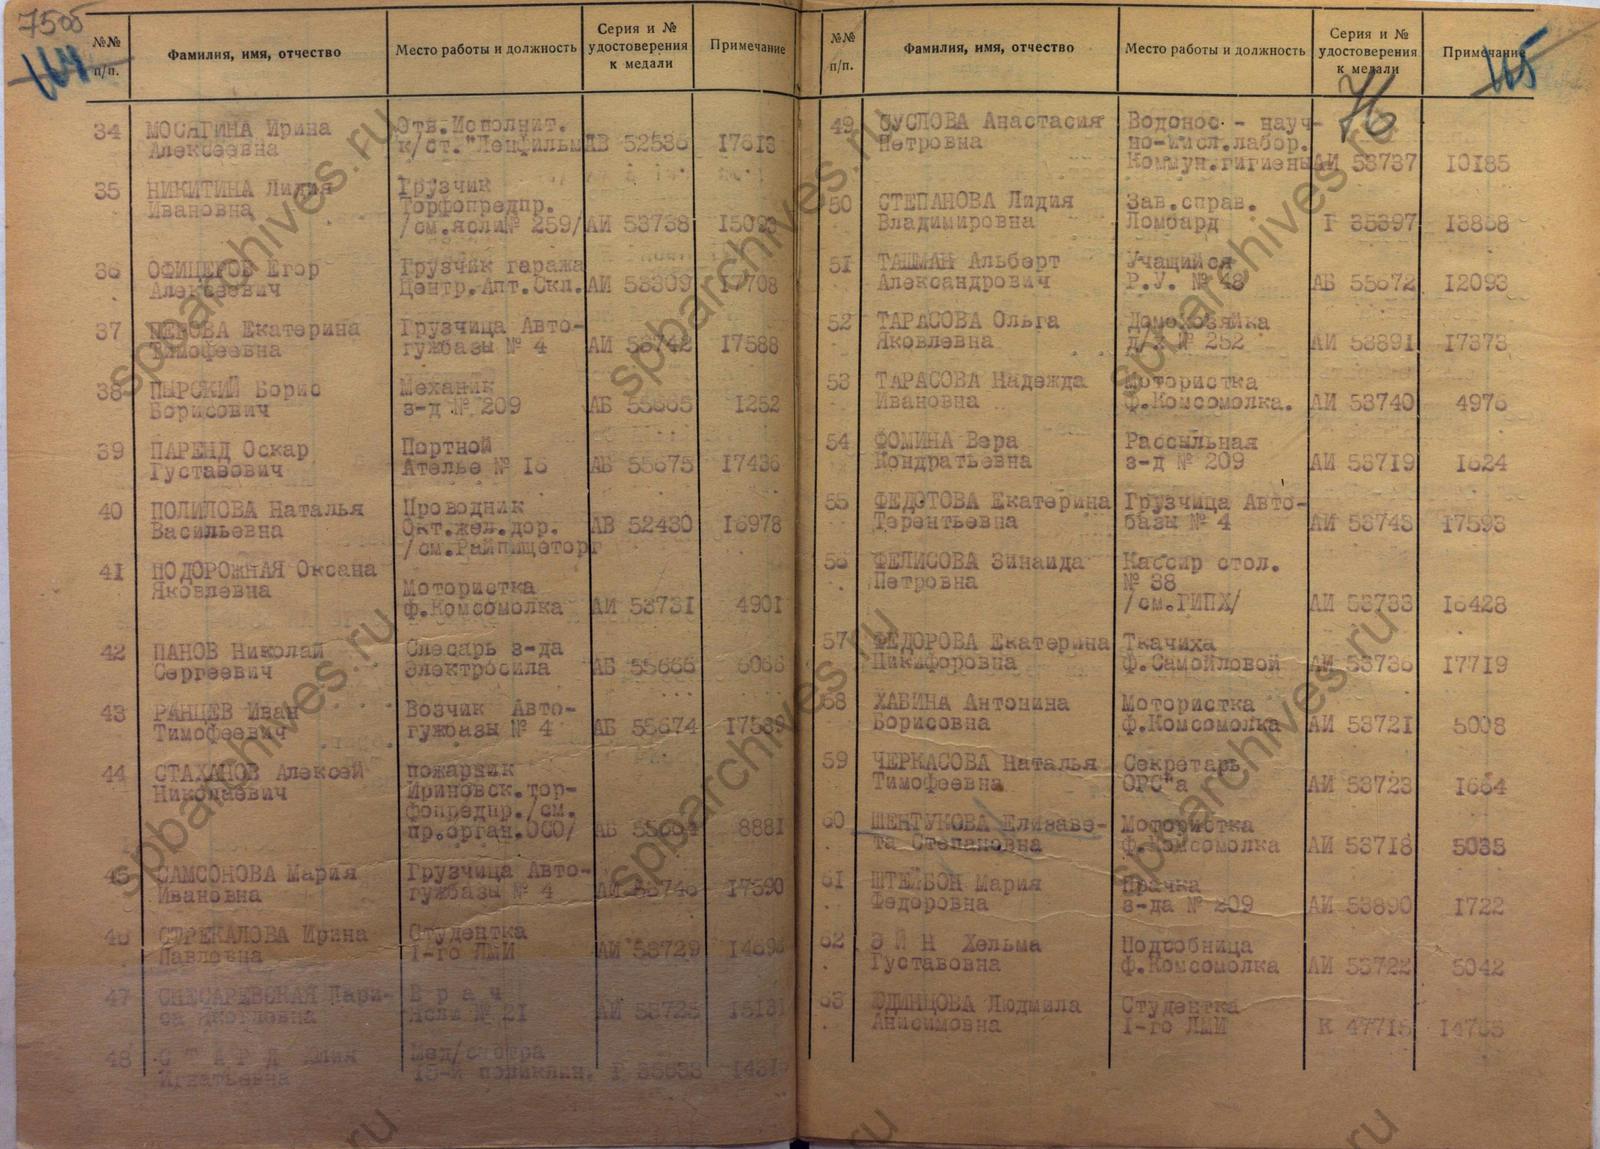 7505
№№ п/п.
Фамилия, имя, отчество
Место работы и должность
Серия и № удостоверения к медали
Примечание
114
34 МОСЯГИНА Ирина Отв.Исполнит.
Алексеевна к/ст."Ленфильм АВ 52536 17613
35 НИКИТИНА Лидия Грузчик
Ивановна Торфопредпр.
/см.ясли№ 259/ АИ 53738 15093
36 ОФИЦЕРОВ Егор Грузчик гаража
Алексеевич Центр.Апт.Скл. АИ 53309 17708
37 ПЕРОВА Екатерина Грузчица Авто-
Тимофеевна гужбазы № 4 АИ 53742 17588
38 ПЫРСКИЙ Борис Механик
Борисович з-д № 209 АБ 55665 1252
39 ПАРЕНД Оскар Портной
Густавович Ателье № 16 АБ 55675 17436
40 ПОЛИЛОВА Наталья Проводник
Васильевна Окт.жел.дор. АВ 52430 16978
/см.Райпищеторг
41 ПОДОРОЖНАЯ Оксана
Яковлевна Мотористка
ф.Комсомолка АИ 53731 4901
42 ПАНОВ Николай Слесарь з-да
Сергеевич Электросила АБ 55666 6066
43 РАНЦЕВ Иван Возчик Авто-
Тимофеевич гужбазы № 4 АБ 55674 17589
44 СТАХАНОВ Алексей пожарник
Николаевич Ириновск.тор-
фопредпр./см.
пр.орган.ОСО/ АБ 55664 8881
45 САМСОНОВА Мария Грузчица Авто-
Ивановна гужбазы № 4 АИ 53746 17590
46 СТРЕКАЛОВА Ирина Студентка
Павловна I-го ЛМИ АИ 53729 14696
47 СЛЕСАРЕВСКАЯ Лари- В р а ч
са Яковлевна Ясли № 21 АИ 53725 15131
48 С Т А Р Д Юлия Мед/сестра
Игнатьевна 15-й поликлин. Г 35633
№№ п/п.
Фамилия, имя, отчество
Место работы и должность
Серия и № удостоверения к медали
Примечание
115
76
49 СУСЛОВА Анастасия Водонос - науч-
Петровна но-иссл.лабор.
Коммун.гигиены АИ 53737 10185
50 СТЕПАНОВА Лидия Зав.справ.
Владимировна Ломбард Г 35397 13858
51 ТАШМАН Альберт Учащийся
Александрович Р.У. № 48 АБ 55672 12093
52 ТАРАСОВА Ольга Домохозяйка
Яковлевна д/х № 252 АИ 53891 17373
53 ТАРАСОВА Надежда Мотористка
Ивановна ф.Комсомолка. АИ 53740 4976
54 ФОМИНА Вера Рассыльная
Кондратьевна з-д № 209 АИ 53719 1624
55 ФЕДОТОВА Екатерина Грузчица Авто-
Терентьевна базы № 4 АИ 53743 17593
56 ФЕЛИСОВА Зинаида Кассир стол.
Петровна № 38
/см.ГИПХ/ АИ 53733 16428
57 ФЕДОРОВА Екатерина Ткачиха
Никифоровна ф.Самойловой АИ 53736 17719
58 ХАБИНА Антонина Мотористка
Борисовна ф.Комсомолка АИ 53721 5008
59 ЧЕРКАСОВА Наталья Секретарь
Тимофеевна ОРС"а АИ 53723 1664
60 ШЕНТУКОВА Елизаве- Мотористка
та Степановна ф.Комсомолка АИ 53718 5035
61 ШТЕЙБОН Мария Прачка
Федоровна з-да № 209 АИ 53890 1722
62 Э Й Н Хельма Подсобница
Густавовна ф.Комсомолка АИ 53722 5042
63 ЮДИНЦОВА Людмила Студентка
Анисимовна I-го ЛМИ К 47715 14765
spbarchives.ru